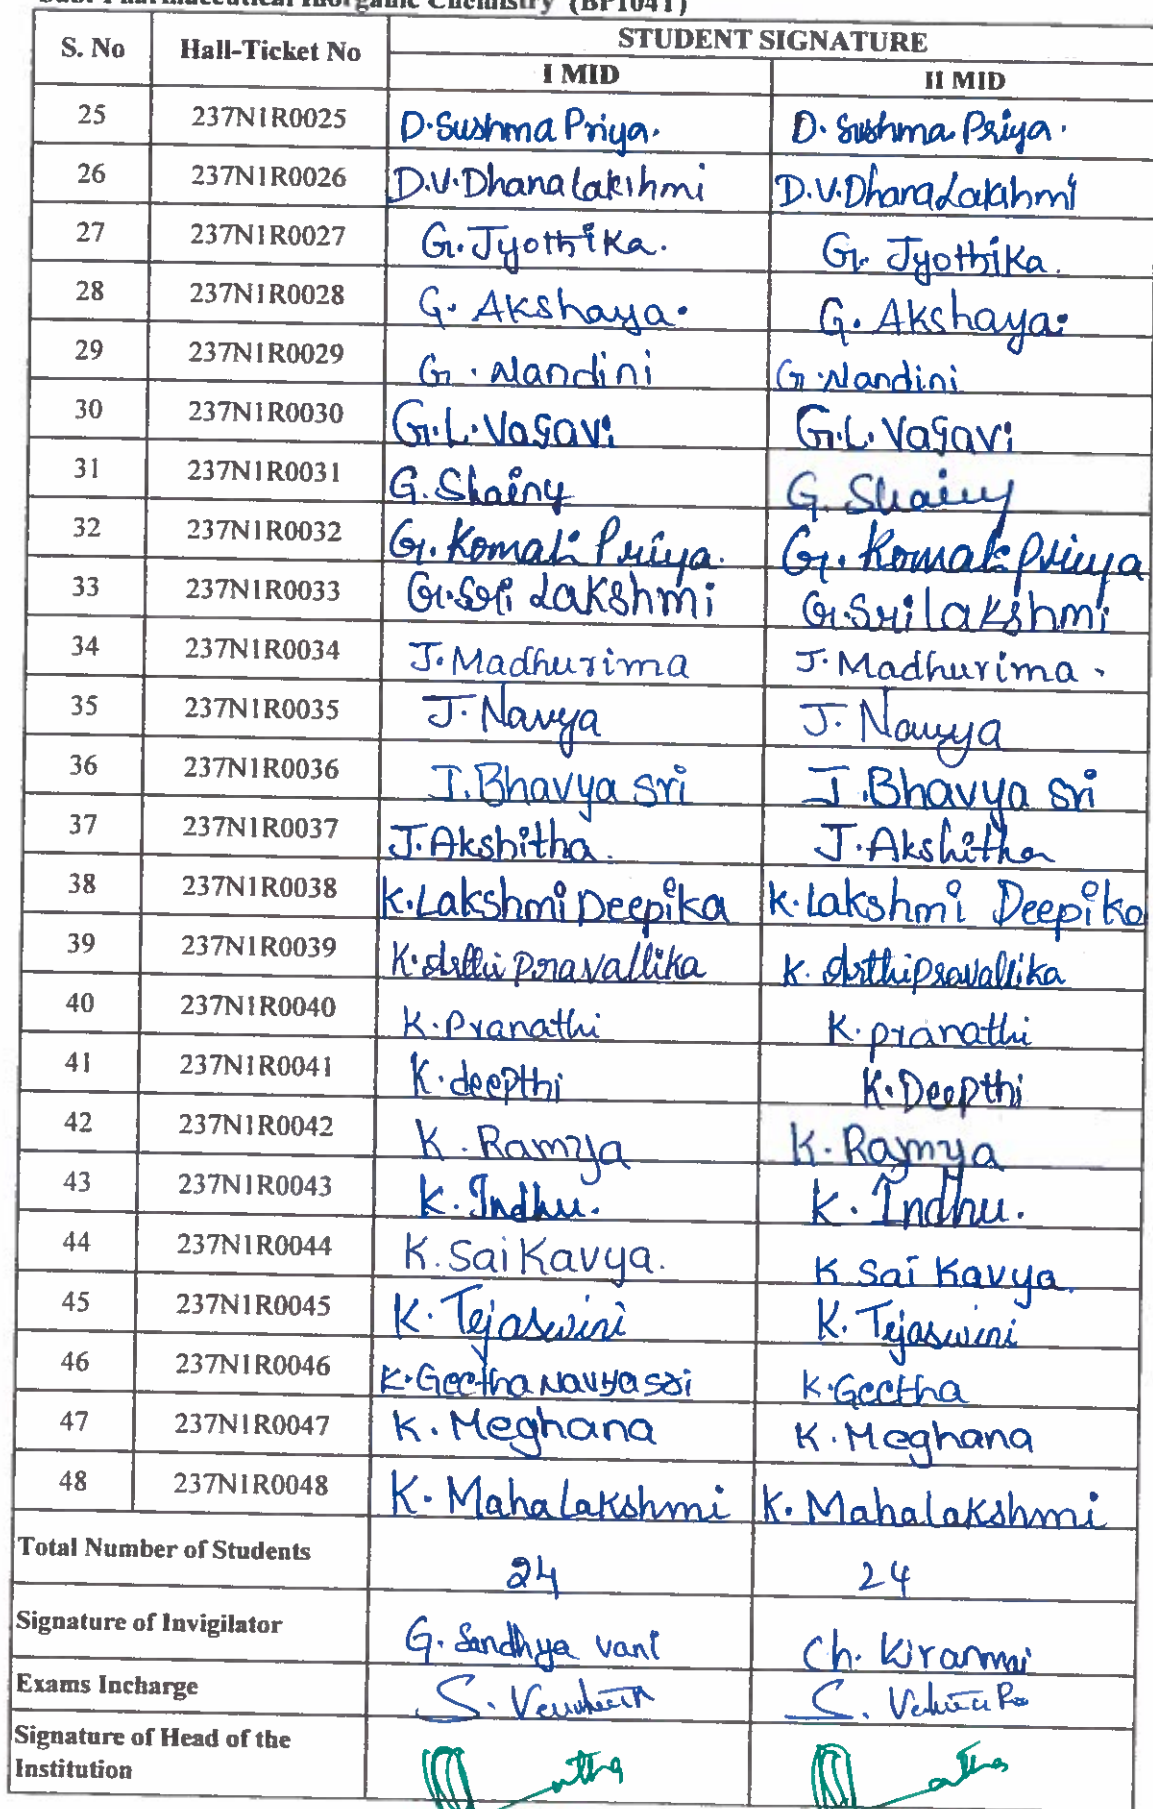 Sub: Pharmaceutical Inorganic Chemistry (BP104T)
S. No Hall-Ticket No STUDENT SIGNATURE
I MID II MID
25 237N1R0025 D.Sushma Priya. D. Sushma Priya.
26 237N1R0026 D.V.Dhana Lakshmi D.V.Dhana Lakshmi
27 237N1R0027 G.Jyothika. G. Jyothika.
28 237N1R0028 G. Akshaya. G. Akshaya.
29 237N1R0029 G. Nandini G. Nandini
30 237N1R0030 G.L.Vagavi G.L.Vagavi
31 237N1R0031 G.Shainy G. Shainy
32 237N1R0032 G.Komali Priya. G. Komali Priya
33 237N1R0033 G.Sri Lakshmi G.Srilakshmi
34 237N1R0034 J.Madhurima J.Madhurima.
35 237N1R0035 J.Navya J. Navya
36 237N1R0036 J.Bhavya Sri J.Bhavya Sri
37 237N1R0037 J.Akshitha. J.Akshitha
38 237N1R0038 K.Lakshmi Deepika K.Lakshmi Deepika
39 237N1R0039 K. pravallika K.
40 237N1R0040 K.Pranathi K.pranathi
41 237N1R0041 K.deepthi K.Deepthi
42 237N1R0042 K.Ramya K.Ramya
43 237N1R0043 K.Indhu. K.Indhu.
44 237N1R0044 K.Sai Kavya. K Sai Kavya.
45 237N1R0045 K.Tejaswini K.Tejaswini
46 237N1R0046 K.Geetha Navya sri K.Geetha
47 237N1R0047 K.Meghana K.Meghana
48 237N1R0048 K.Maha Lakshmi K.Mahalakshmi
Total Number of Students 24 24
Signature of Invigilator G. Sandhya vani Ch. Kiranmai
Exams Incharge S. S.
Signature of Head of the
Institution